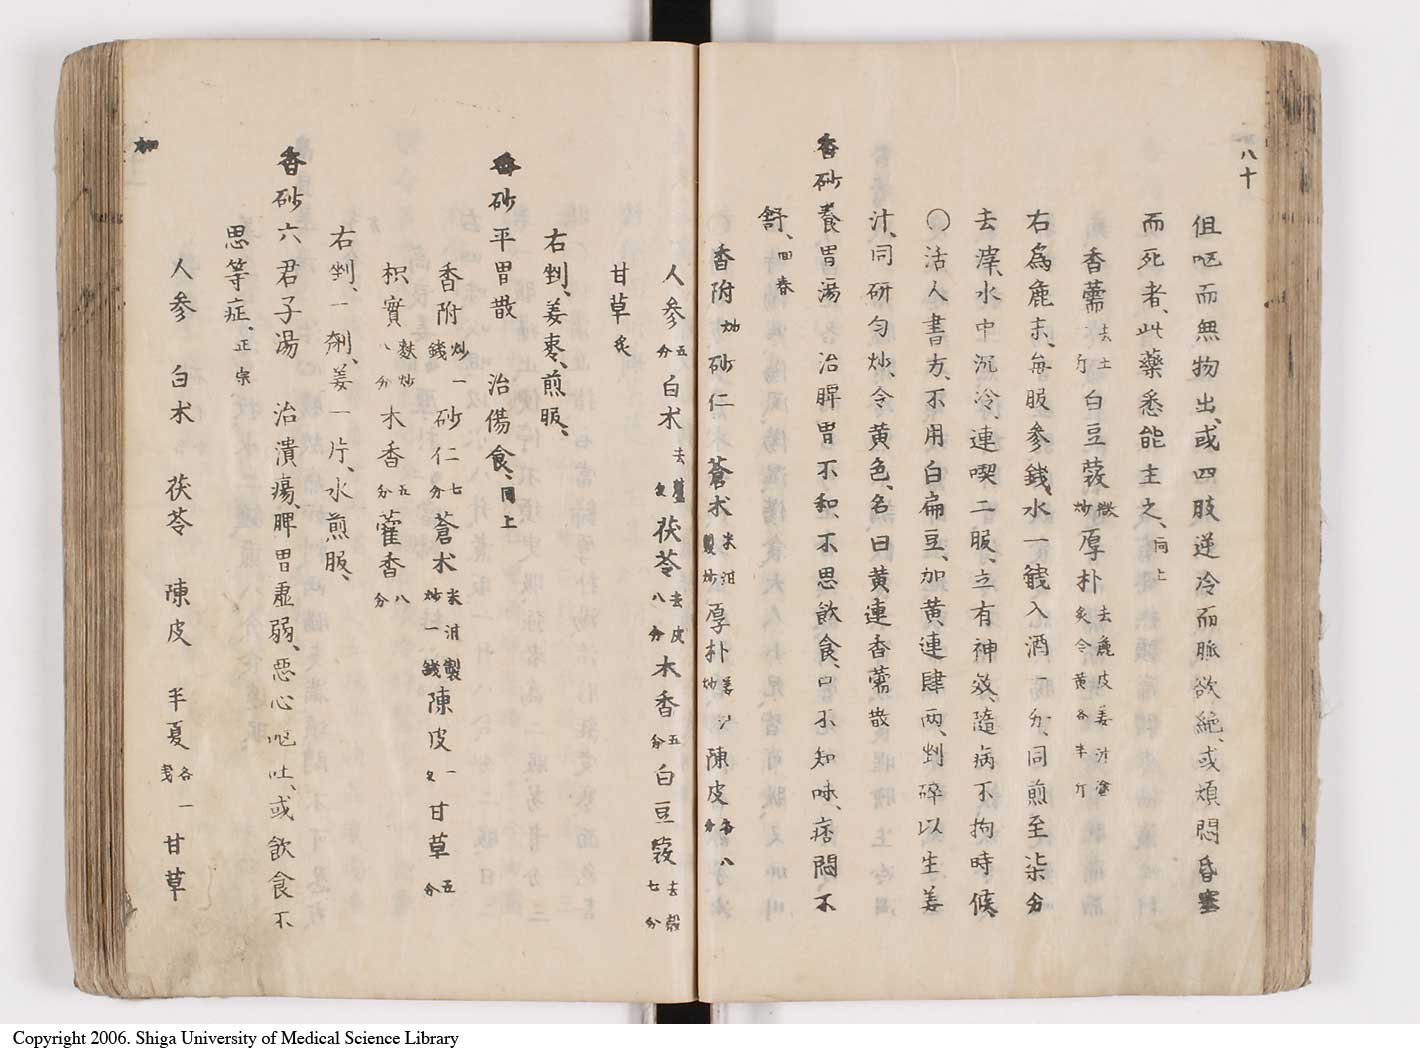 八十
但呕而無物出、或四肢逆冷而脈欲絶、或煩悶昏塞
而死者、此藥悉能主之、同上
香薷去土斤白豆蔲微炒厚朴去麁皮姜汁塗炙令黄各半斤
右為麁末、毎服参銭、水一銭入酒一分、同煎至柒分
去滓、水中沉冷、連喫二服、立有神效、隨病不拘時候、
〇活人書方、不用白扁豆、加黄連肆两、剉碎以生姜
汁、同研匀炒、令黄色、名曰黄連香薷散
香砂養胃湯 治脾胃不和、不思飲食、口不知味、痞悶不
舒、回春
香附炒砂仁 蒼术米泔製炒厚朴姜汁炒陳皮各八分
人参五分白术去蘆一戋茯苓去皮八分木香五分白豆蔲去殻七分
甘草炙
右剉、姜枣、煎服、
香砂平胃散 治傷食、同上
香附炒一銭砂仁七分蒼术米泔製炒一銭陳皮一戋甘草五分
枳實麩炒八分木香五分藿香八分
右剉、一剤、姜一片、水煎服、
香砂六君子湯 治潰瘍脾胃虚弱、惡心呕吐、或飲食不
思等症、正宗
人参 白术 茯苓 陳皮 半夏各一戋 甘草
Copyright 2006. Shiga University of Medical Science Library